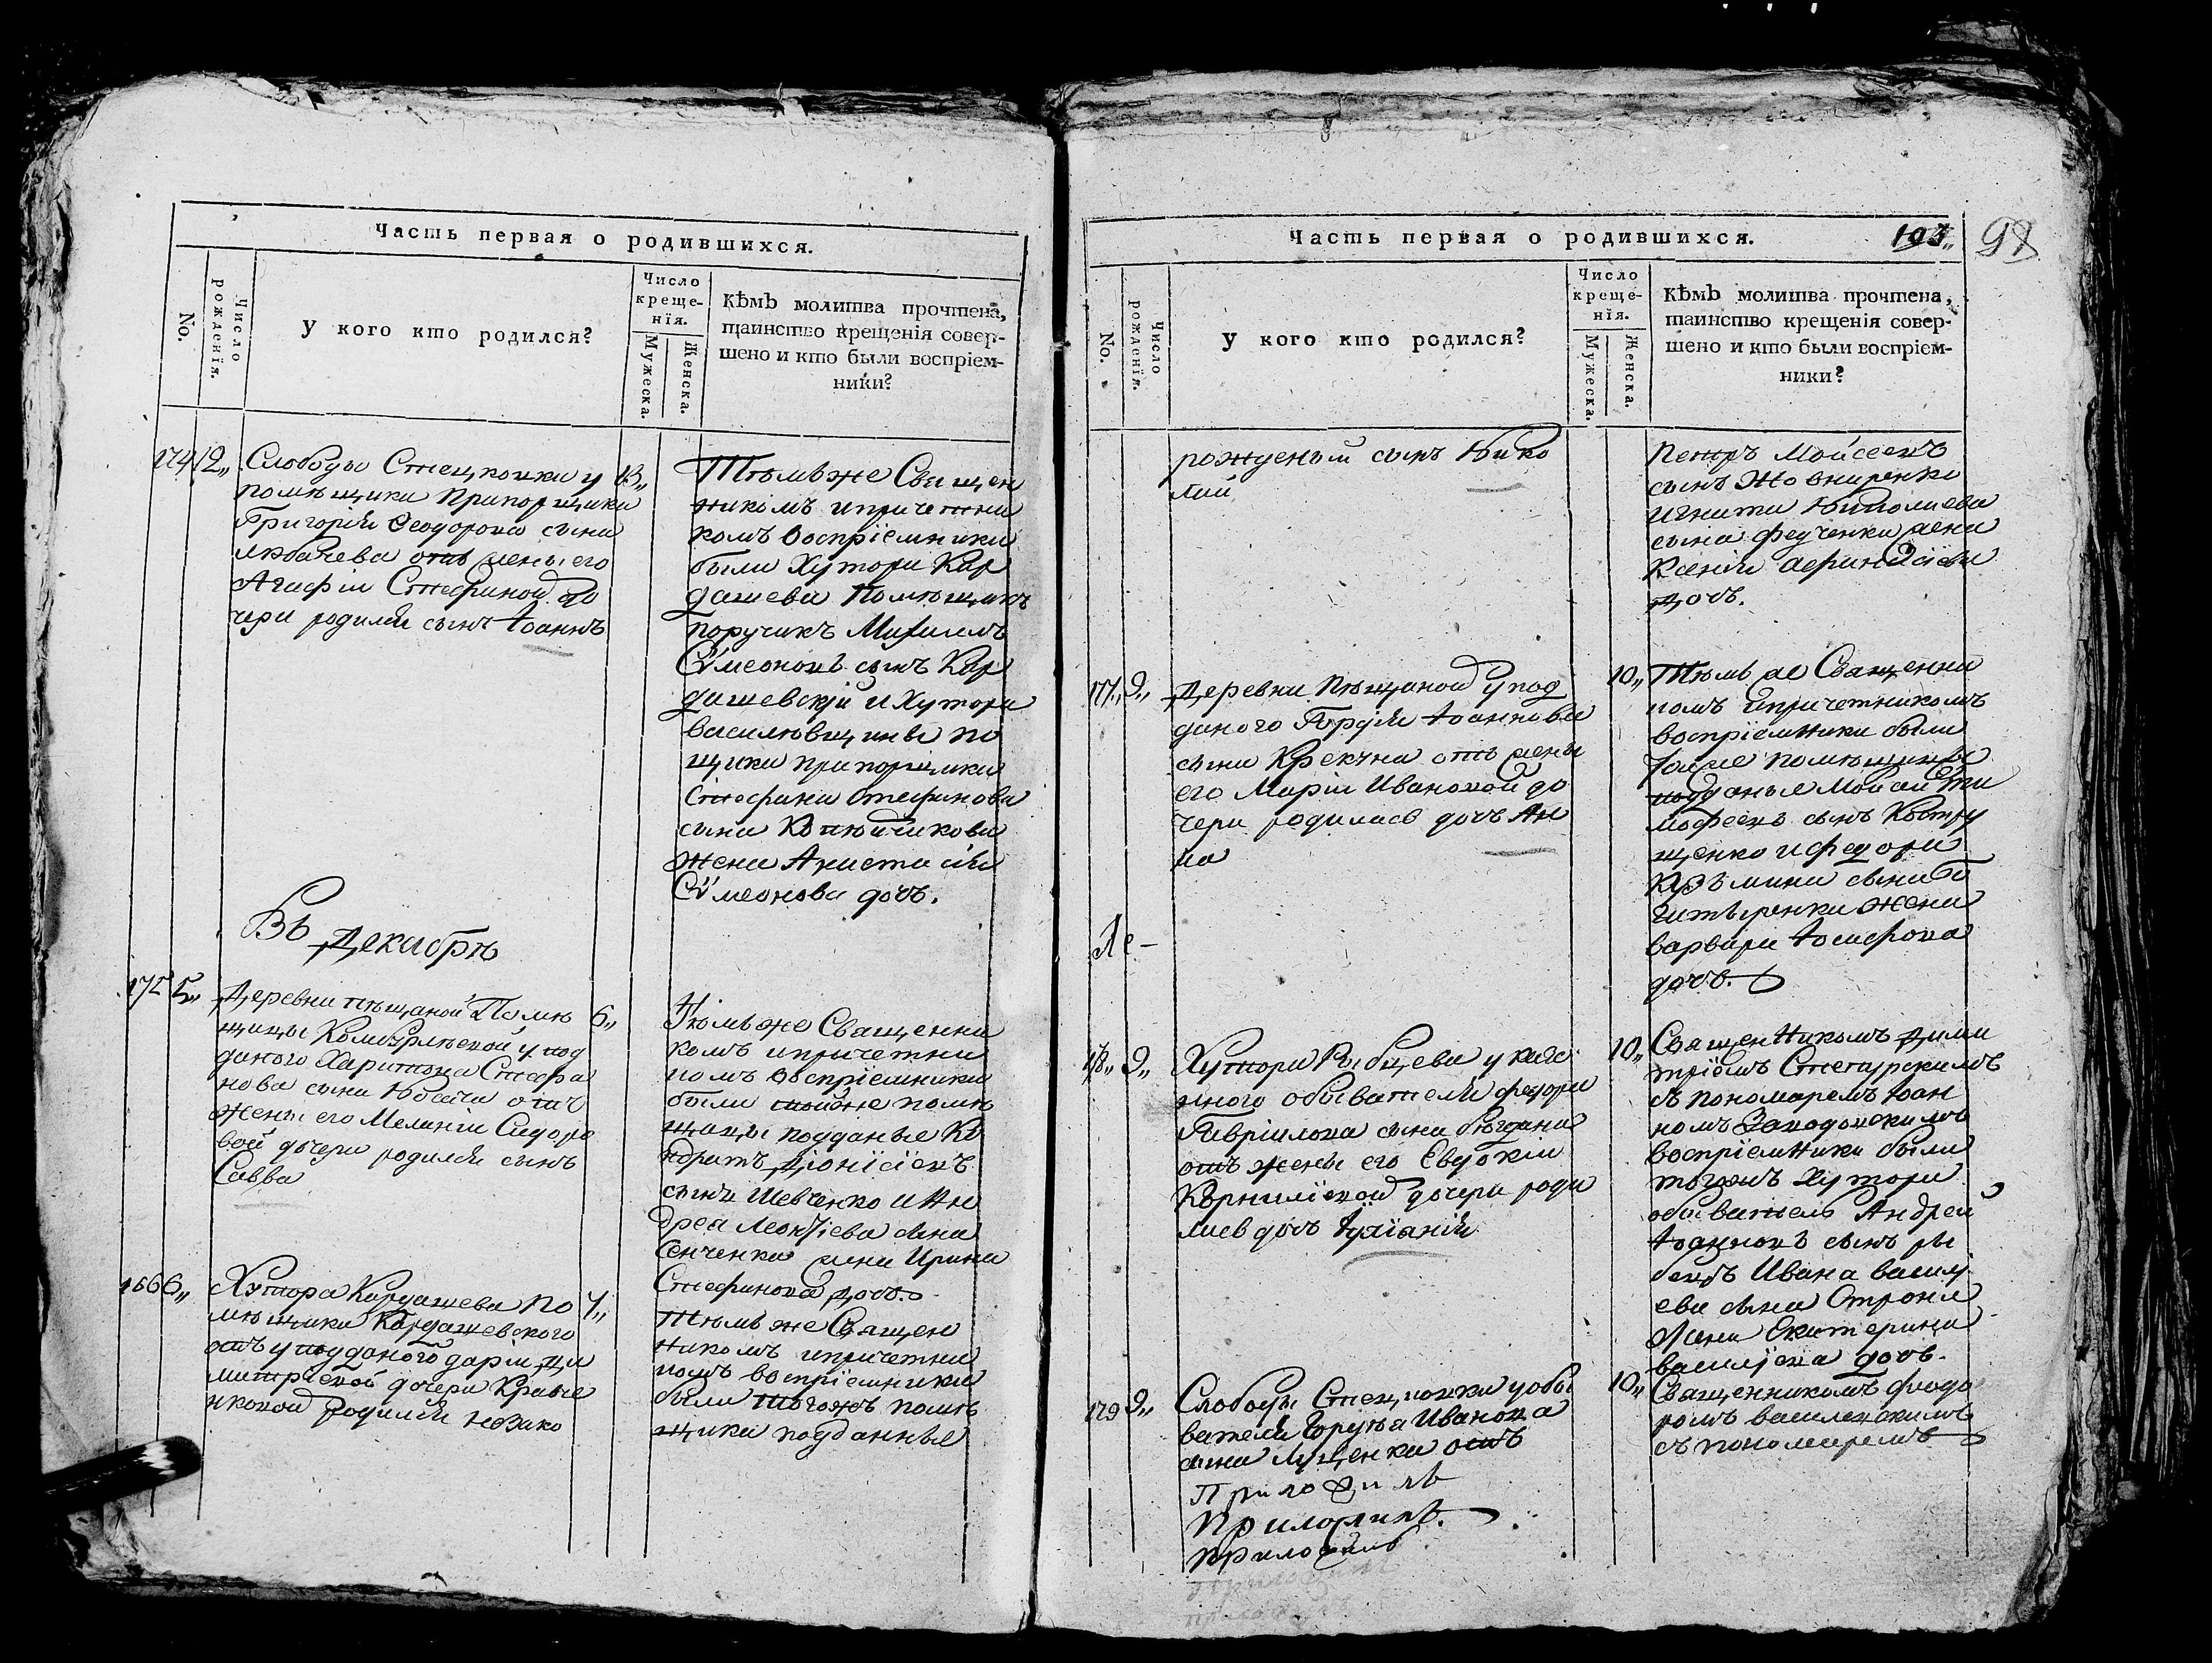 Часть первая о родившихся.
No.
Число рожденія.
У кого кто родился?
Число
креще-
нія.
Мужеска.
Женска.
Кѣмъ молитва прочтена,
таинство крещенія совер-
шено и кто были воспріем-
ники?
174 12„ Слободы Стецковки у 13„
помѣщика Прапорщика
Григорія Ѳеодорова сына
Любачева отъ жены его
Агафіи Стефановой до
чери родился сынъ Іоаннъ
Тѣмъ же Священ
никомъ и причетни
комъ воспріемники
были Хутора Кар
дашева Помѣщикъ
поручикъ Михаилъ
Сѵмеоновъ сынъ Кар
дашевскій и Хутора
Василевщины по
щика прапорщика
Стефана Стефанова
сына
жена Анастасія
Сѵмеонова дочь.
Въ Декабрѣ
175 5„ Деревни Пѣщаной Помѣ 6„
щицы у под
даного Харитона Стефа
нова сына отъ
жены его Меланіи Сидоро
вой дочери родился сынъ
Савва
Тѣмъ же Священни
комъ и причетни
комъ воспріемники
были тойже помѣ
щицы подданые Ко
ндратъ Діонісіевъ
сынъ Шевченко и Ан
дрея Леонтіева сына
Сенченка жена Ирина
Стефанова дочь.
6„ Хутора Кардашева по 7„
мѣщика Кардашевского
отъ у подданого Даріи Ди
митріевой дочери Кравче
нковой родился незако
Тѣмъ же Священ
никомъ и причетни
комъ воспріемники
были тогожъ помѣ
щика подданные
Часть первая о родившихся.
193„
98
No.
Число рожденія.
У кого кто родился?
Число
креще-
нія.
Мужеска.
Женска.
Кѣмъ молитва прочтена,
таинство крещенія совер-
шено и кто были воспріем-
ники?
рожденый сынъ Нико
лай
Петръ Моисеевъ
сынъ Жовниренко
Игната Николаева
сына Федченка жена
Ксенія Афанасіева
дочь.
177„ 9„ Деревни Пѣщаной у под
даного Гордѣя Іоаннова
сына Крекуна отъ жены
его Маріи Ивановой до
чери родилась дочь Ан
на
10„ Тѣмъ же Священни
комъ и причетникомъ
воспріемники были
тоже помѣщицы
подданые Моисей Ти
мофеевъ сынъ Костру
щенко и Федора
Кузьмина сына
жена
Варвара Іосифова
дочь.
Ле-
178„ 9„ Хутора Рыбцева у казе
нного обывателя Федора
Гавріилова сына
отъ жены его Евдокіи
Корниліевой дочери роди
лась дочь Іуліанія
10„ Священникомъ Дими
тріемъ
съ пономаремъ Іоан
номъ
воспріемники были
тогожъ Хутора
обыватель Андрей
Іоанновъ сынъ Ры
бецъ Ивана Васи
ева сына
жена Екатерина
Василіева дочь.
179 9„ Слободы Стецковки у обы
вателя Ивановa
сына Луценка отъ
10„ Священникомъ Феодо
ромъ Василевскимъ
съ пономаремъ
Приложилъ
Приложилъ.
Приложилъ